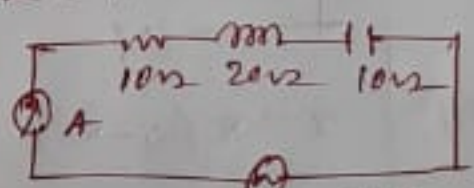 10Ω 20Ω 10Ω
A